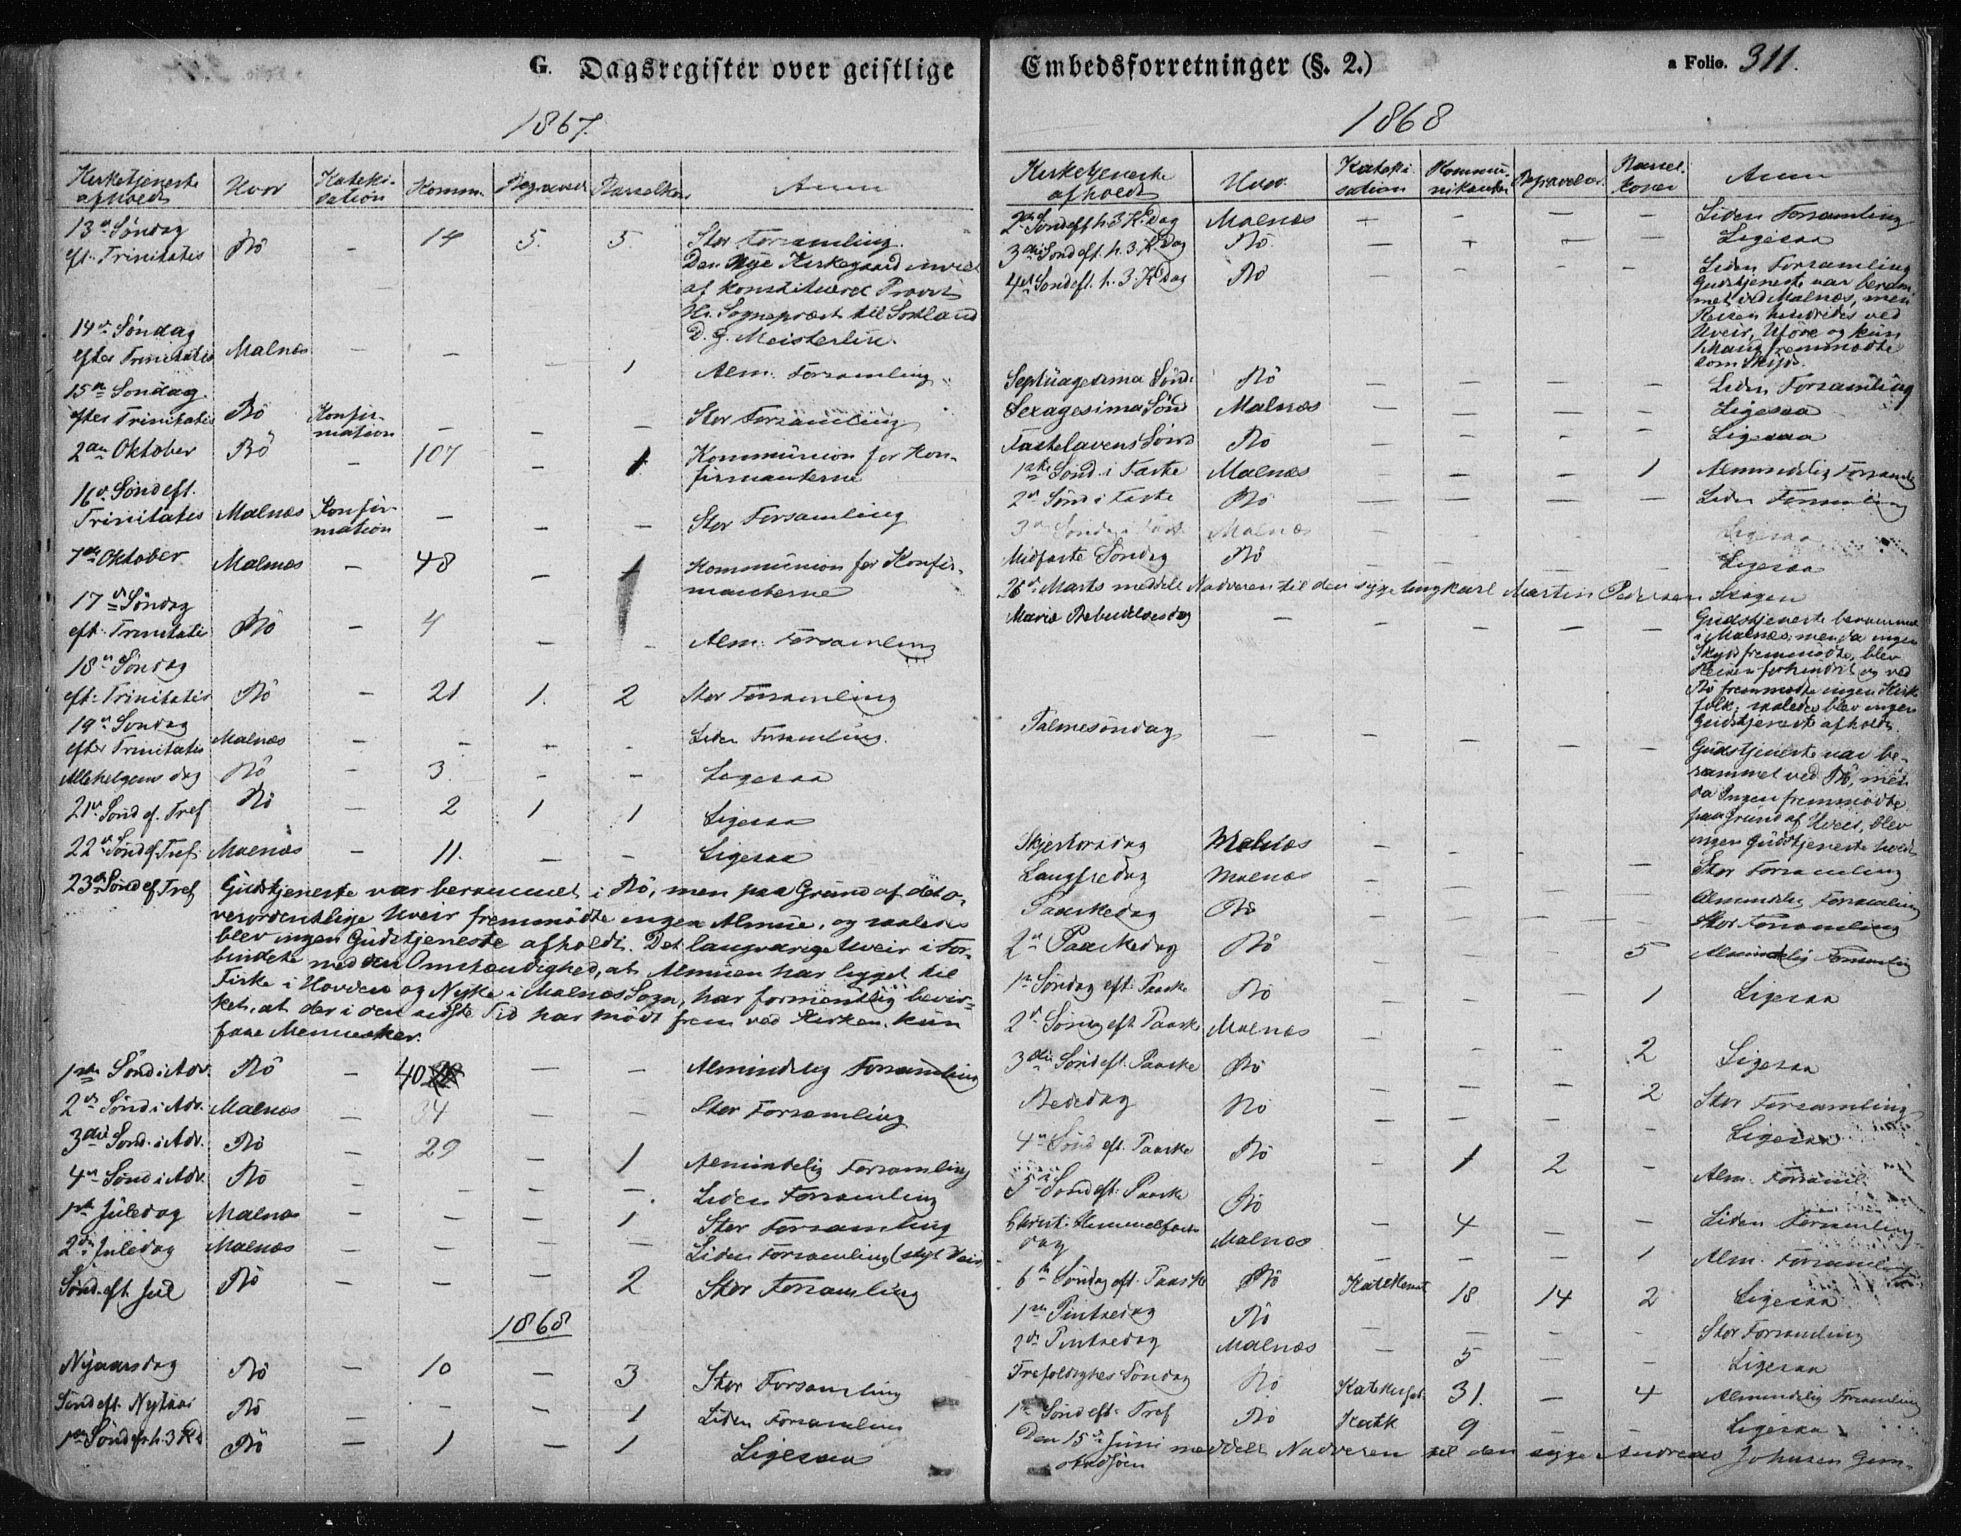 G. Dagsregister over geistlige
1867.
Kirketjeneste afholdt Hvor Kateki-sation Komm. Begravels. Barselkon. Anm
13de Søndag
eft. Trinitatis Bö – 14 5. 5. Stor Forsamling.
Den Nye Kirkegaard indviet
af konstitueret Provst
Hr. Sognepræst til Sortland
D. G. Meisterlin.
14de Søndag
efter Trinitatis Malnæs – – – 1 Alm. Forsamling
15de Søndag
efter Trinitatis Bö Konfir-mation – – – Stor Forsamling
2den Oktober Bö – 107 – 1 Kommunion for Kon-
firmanterne
16de Sønd eft.
Trinitatis Malnæs Konfir-mation – – – Stor Forsamling
7de Oktober Malnæs – 48 – 1 Kommunion for Konfir-
manterne
17de Søndag
eft. Trinitatis Bö – 4 – – Alm. Forsamling
18de Søndag
eft. Trinitatis Bö – 21 1. 2 Stor Forsamling
19de Søndag
efter Trinitatis Malnæs – – – – Liden Forsamling.
Allehelgens dag Bö – 3. – – Ligesaa
21de Sønd ef. Tref Bö – 2 1 1 Ligesaa
22de Sønd ef. Tref. Malnæs – 11. – – Ligesaa
23de Sønd ef Tref Gudstjeneste var berammet i Bö, men paa Grund af det o-
verordentlige Uveir fremmödte ingen Almue, og saaledes
blev ingen Gudstjeneste afholdt. Det langvarige Uveir i For-
bindelse med den Omstændighed, at Almuen har ligget til
Fiske i Hovden og Nyke i Malnæs Sogn, har formentlig bevir-
ket, at der i den sidste Tid har mödt frem ved Kirken kun
faae Mennesker.
1ste Sønd i Adv. Bö – 40 – – Almindelig Forsamling
2den Sønd i Adv. Malnæs – 34 – – Stor Forsamling
3die Sønd. i Adv. Bö – 29 – 1 Almindelig Forsamling
4de Sønd i Adv. Bö – – – – Liden Forsamling
1ste Juledag Malnæs – – – 1 Stor Forsamling
2den Juledag Malnæs – – – – Liden Forsamling (stygt Veir)
Sønd. eft. Jul Bö – – – 2 Stor Forsamling
1868
Nyaarsdag Bö – 10 – 3 Stor Forsamling
Sønd eft. Nytaar Bö – – – 1 Liden Forsamling
1ste Sønd eft h. 3 K d Bö – 1 – 1 Ligesaa
Embedsforretninger (§. 2.)
a Folio. 311.
1868
Kirketjeneste afholdt Hvor Kateki-sation Kommu-nikanter Begravelser. Barsel-koner Anm
2den Sønd eft h. 3 K. Dag Malnæs – – – – Liden Forsamling
3die Sønd eft. h. 3 K Dag Bö – – – – Ligesaa
4de Sønd eft. h. 3. K Dag Bö – – – – Liden Forsamling
Gudstjeneste var beram-
met ved Malnæs, men
Reisen hindredes ved
Uveir, Uföre og kun
1 Mand fremmödte
som Skyds.
Septuagesima Sønd. Bö – – – – Liden Forsamling
Sexagesima Sønd Malnæs – – – – Ligesaa
Fastelavens Sønd Bö – – – – Ligesaa
1ste Sønd. i Faste Malnæs – – – 1 Almindelig Forsamling
2den Sønd i Faste Bö – – – – Liden Forsamling
3die Søndag i Faste Malnæs – – – – Ligesaa
Midfaste Søndag Bö – – – – Ligesaa
26de Marts meddelt Nadveren til den syge Ungkarl Martin Pedersen Skagen
Mariæ Bebudelsesdag – – – – – Gudstjeneste berammet
i Malnæs, men da ingen
Skyds fremmödte, blev
Reisen forhindret og ved
Bö fremmödte ingen Kirke
folk; saaledes blev ingen
Gudstjeneste afholdt.
Palmesøndag – – – – – Gudstjeneste var be-
rammet ved Bö, men
da Ingen fremmödte
paa Grund af Uveir, blev
ingen Gudstjeneste holdt
Skjertorsdag Malnæs – – – – Stor Forsamling
Langfredag Malnæs – – – – Almindelig Forsamling
Paaskedag Bö – – – – Stor Forsamling
2den Paaskedag Bö – – – 5 Almindelig Forsamling
1ste Søndag eft. Paaske Bö – – – 1 Ligesaa
2den Søndag eft Paaske Malnæs – – – 2 Ligesaa
3die Sønd eft. Paaske Bö – – – 2 Stor Forsamling
Bededag Bö – – – – Ligesaa
4de Sønd eft. Paaske Bö – 1 2 – Alm. Forsaml.
5te Sønd eft. Paaske Bö – 4 – – Liden Forsamling
Christi Himmelfarts
dag Malnæs – – – 1 Alm. Forsamling
6te Søndag eft. Paaske Bö 18 14 2 Ligesaa
1ste Pintsedag Bö – – – – Stor Forsamling
2den Pintsedag Malnæs – 5 – – Ligesaa
Trefoldigheds Søndag Bö 31. – 4 Almindelig Forsamling
1ste Sønd eft. Tref Bö Katk 9 – – Ligesaa
Den 15de Juni meddelt Nadveren til den syge Andreas Johnsen Gim-
stadsjöen